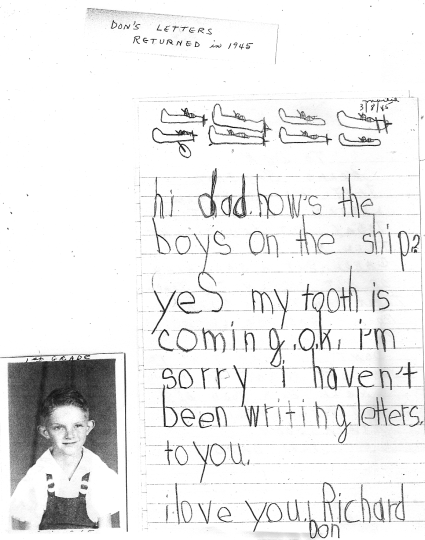 DON'S LETTERS
RETURNED in 1945
3/8/45
hi dad.how's the
boys on the ship?
yes my tooth is
coming.o.k. i'm
sorry i haven't
been writing letters.
to you.
i love you. Richard
Don
1st GRADE